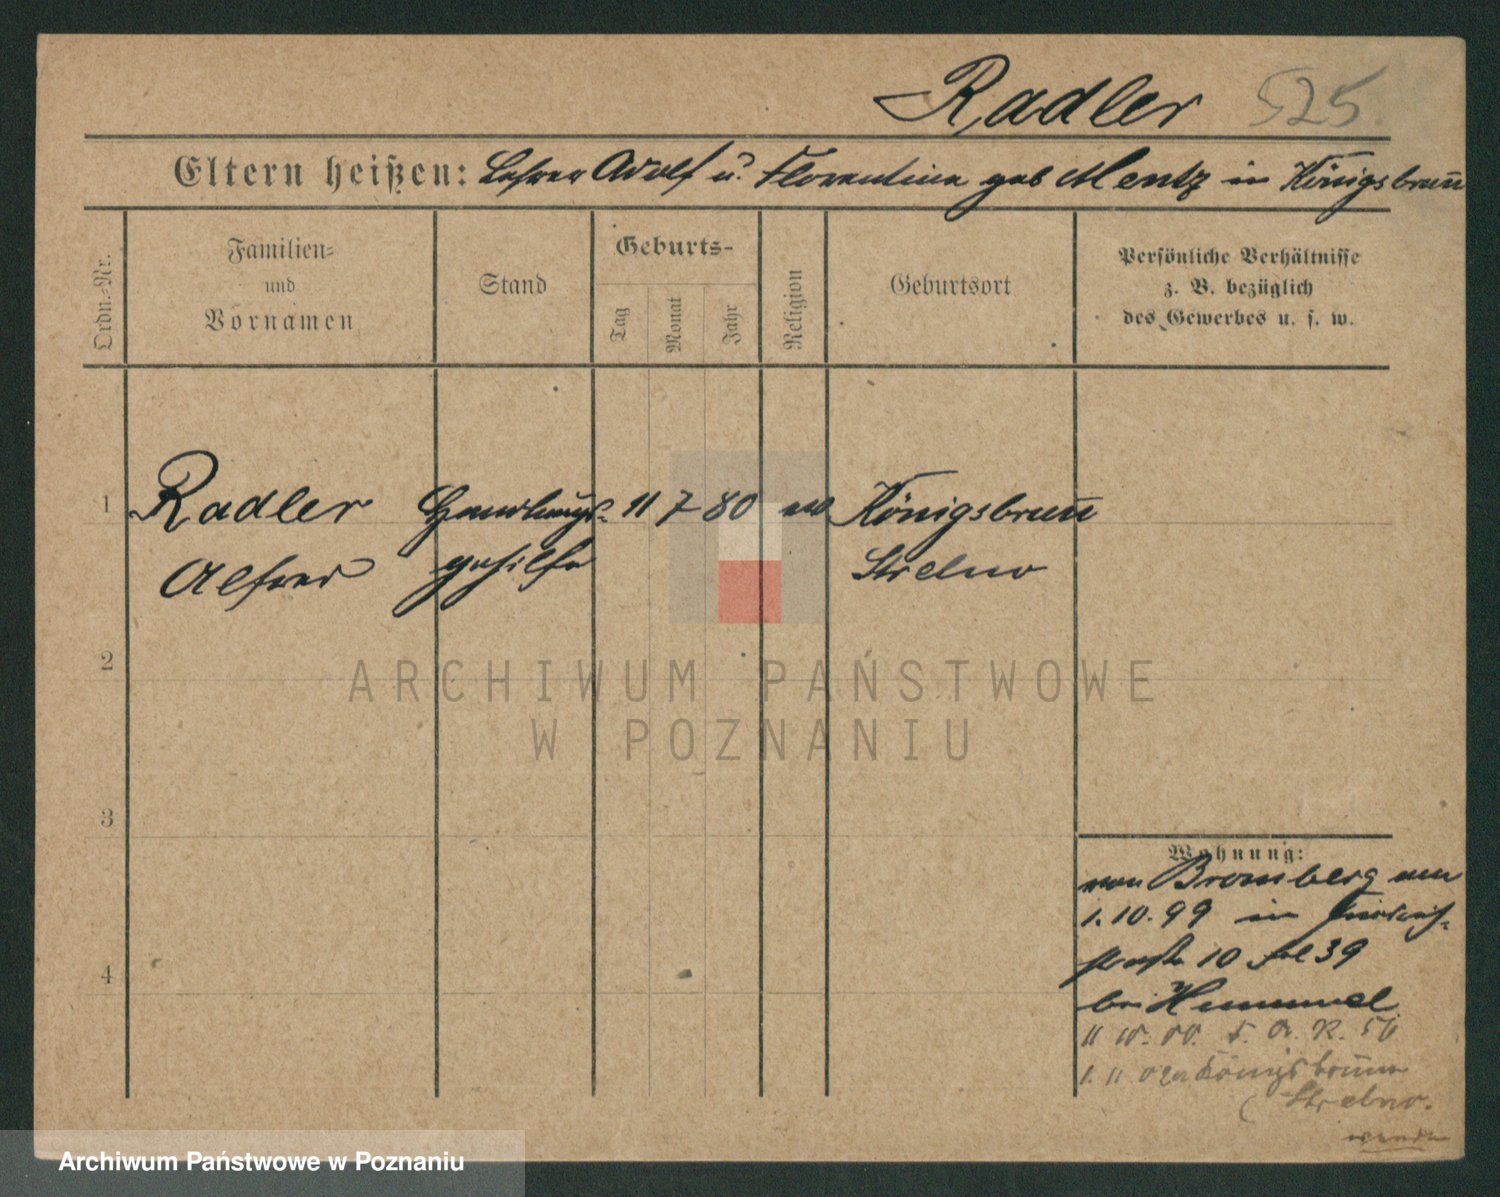 Radler 525.
Eltern heißen: Lehrer Adolf u. Florentine geb Mentz in Königsbrun̄
Ordn.-Nr.
Familien-
und
Vornamen
Stand
Geburts-
Tag
Monat
Jahr
Religion
Geburtsort
Persönliche Verhältnisse
z. B. bezüglich
des Gewerbes u. s. w.
1 Radler Handlungs- 11 7 80 Königsbrun̄
Alfred gehilfe Strelno
2
ARCHIWUM PAŃSTWOWE
W POZNANIU
3
4
Wohnung:
von Bromberg am
1.10.99 in
straße 10 39
bei Hummel
R. 56
1. 11 Königsbrunn
Strelno.
wenden
Archiwum Państwowe w Poznaniu